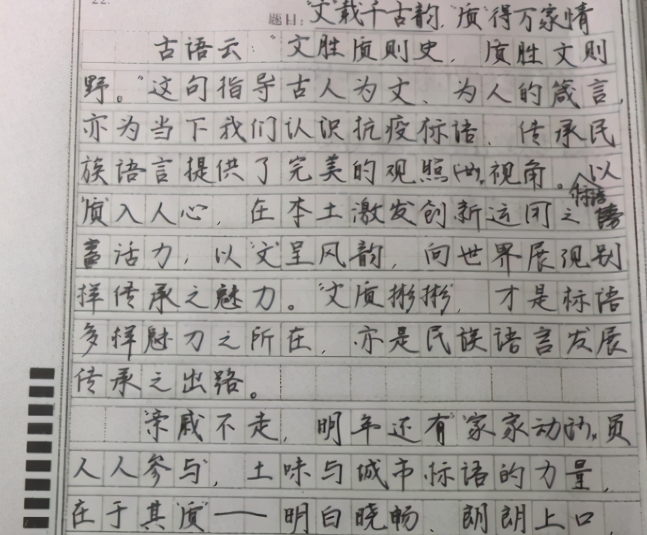 22.
题目:“文”载千古韵,“质”得万家情
古语云:“文胜质则史,质胜文则
野。”这句指导古人为文、为人的箴言,
亦为当下我们认识抗疫标语、传承民
族语言提供了完美的观照性视角。以
“质”入人心,在本土激发创新运用之标语
活力,以“文”呈风韵,向世界展现别
样传承之魅力。“文质彬彬”,才是标语
多样魅力之所在,亦是民族语言发展
传承之出路。
“亲戚不走,明年还有”“家家动员,
人人参与”,土味与城市标语的力量,
在于其“质”——明白晓畅、朗朗上口,